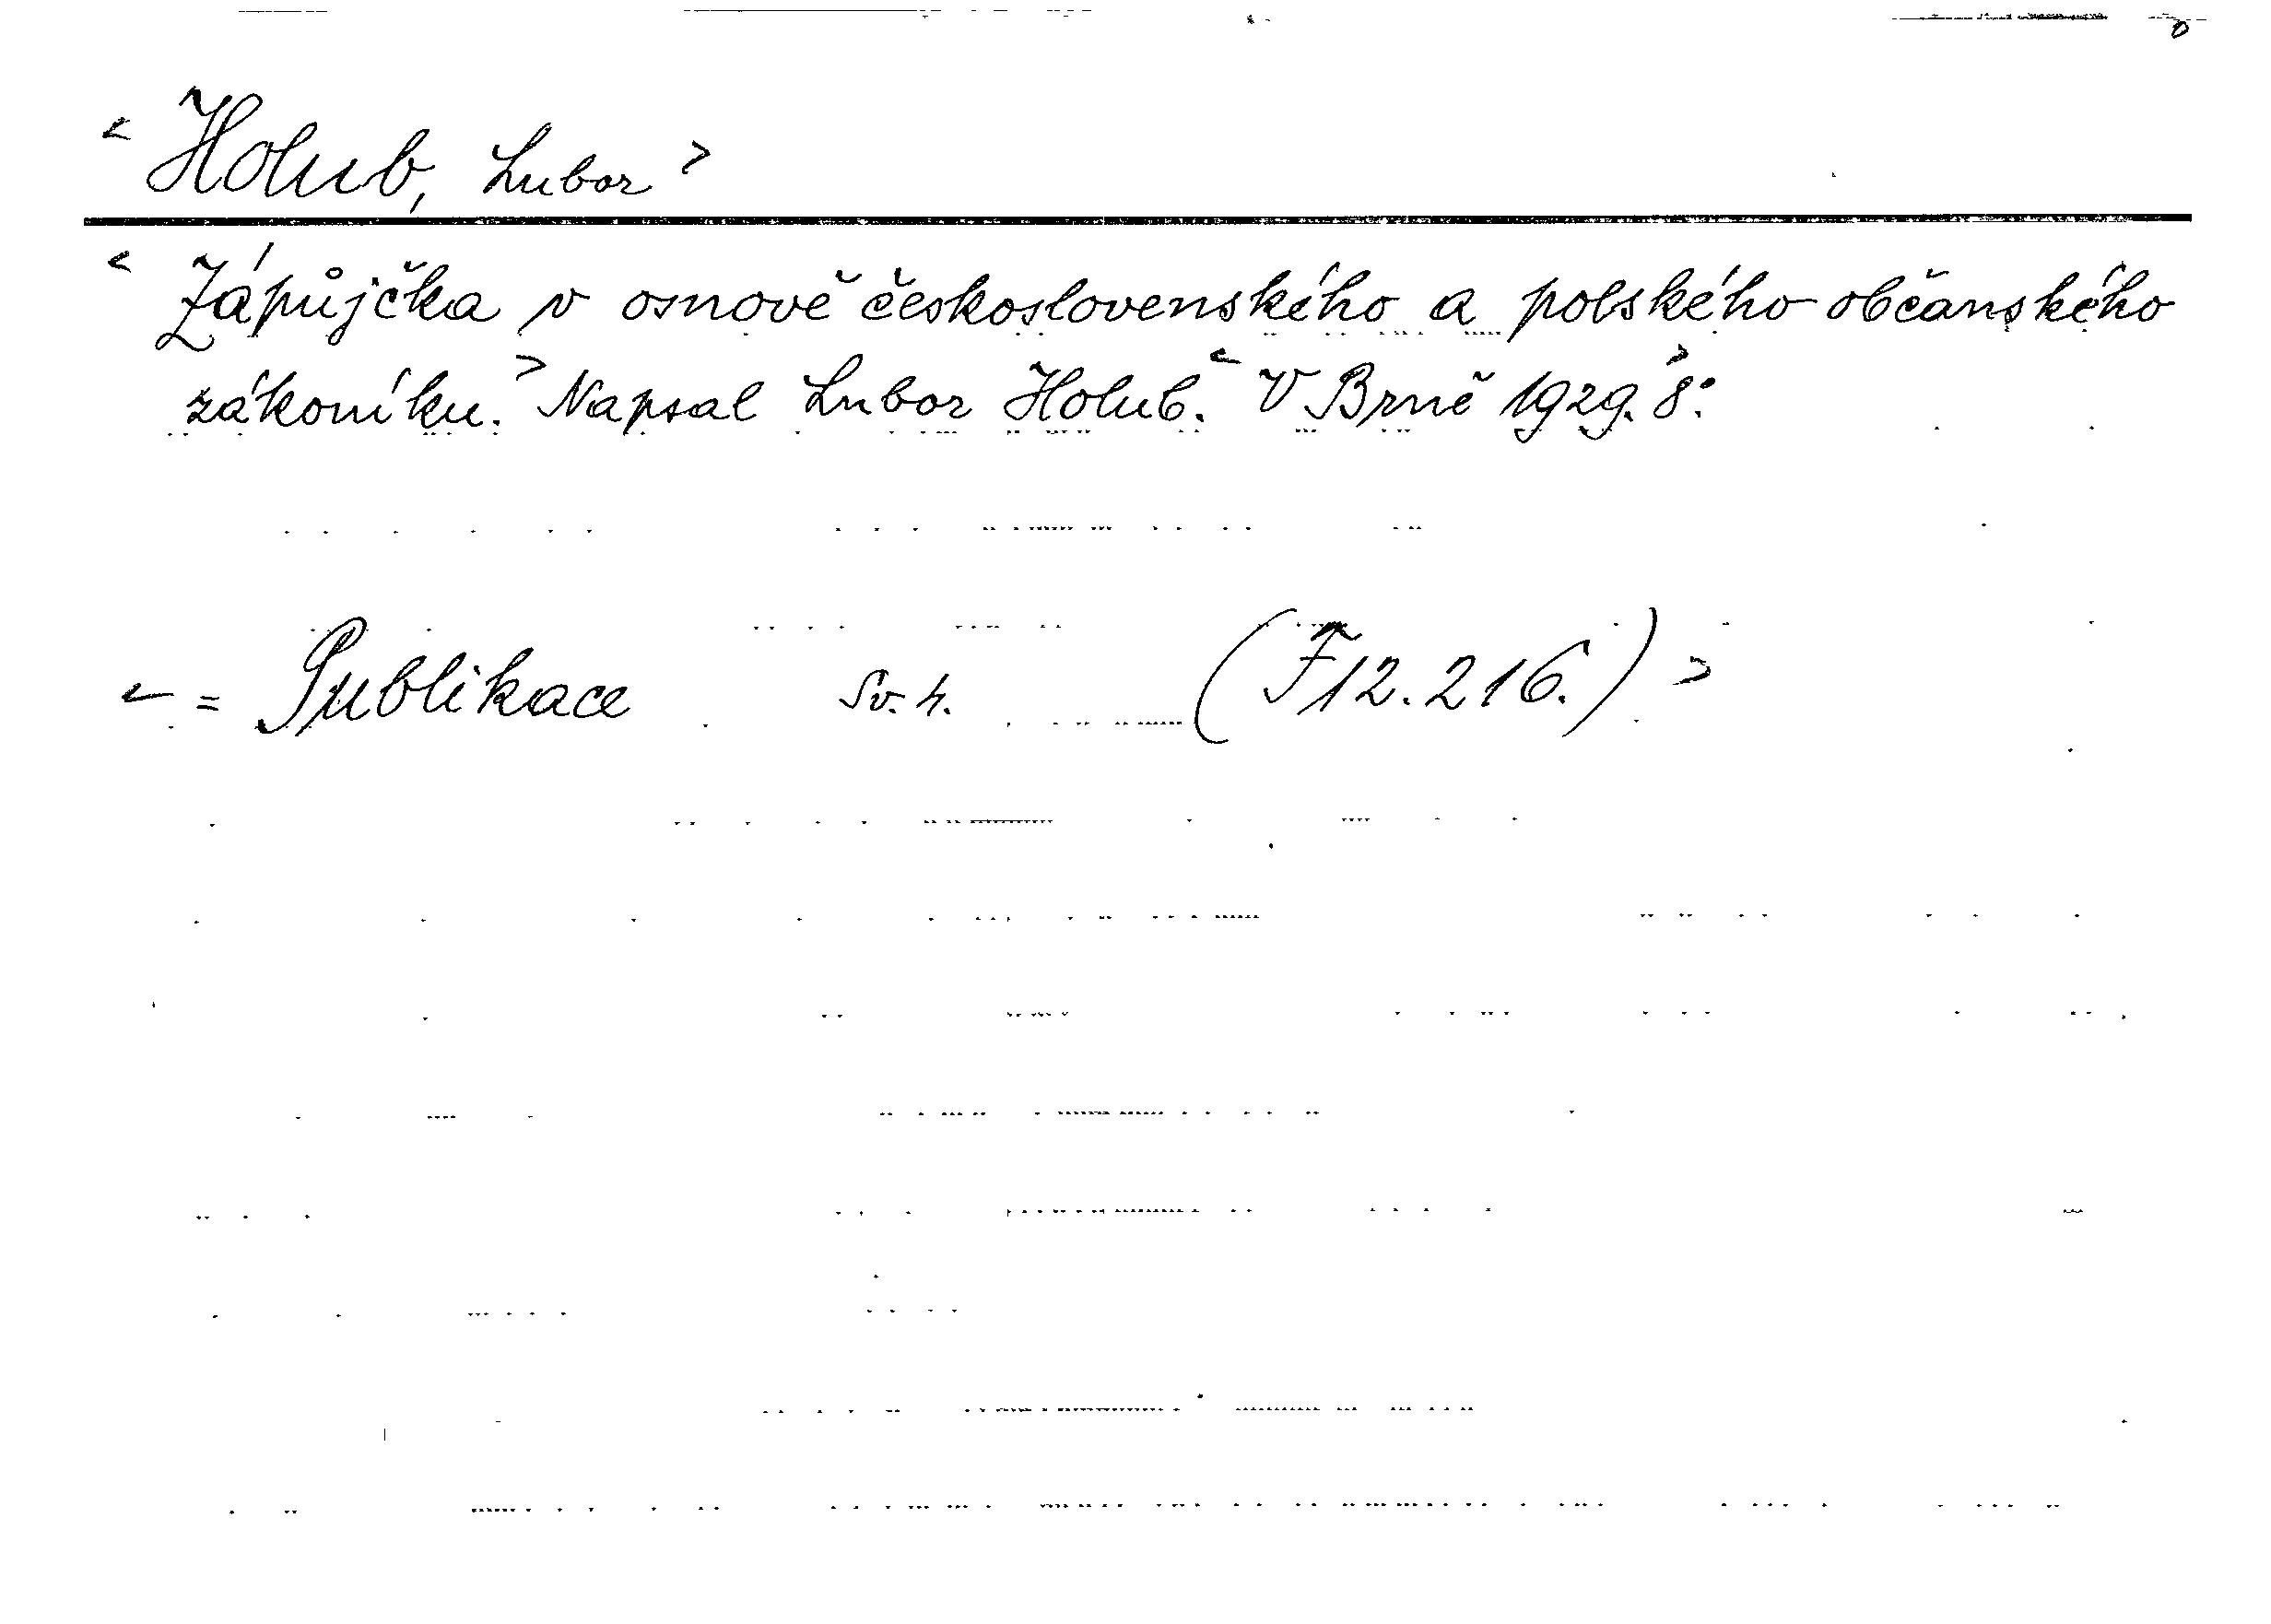 < Holub, Lubor >
< Zápůjčka v osnově československého a polského občanského
zákoníku. > Napsal Lubor Holub. < V Brně 1929. > 8°.
< = Publikace Sv. 4. (F12.216.) >